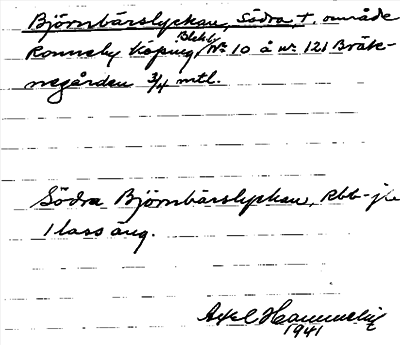 Björnbärslyckan, Södra, t. område
Ronneby Köping, Blek. Nr 10 å nr 121 Bräk-
negården 3/4 mtl.
Södra Björnbärslyckan, Rbb-jo
1 lass äng.
Axel Hammelin
1941